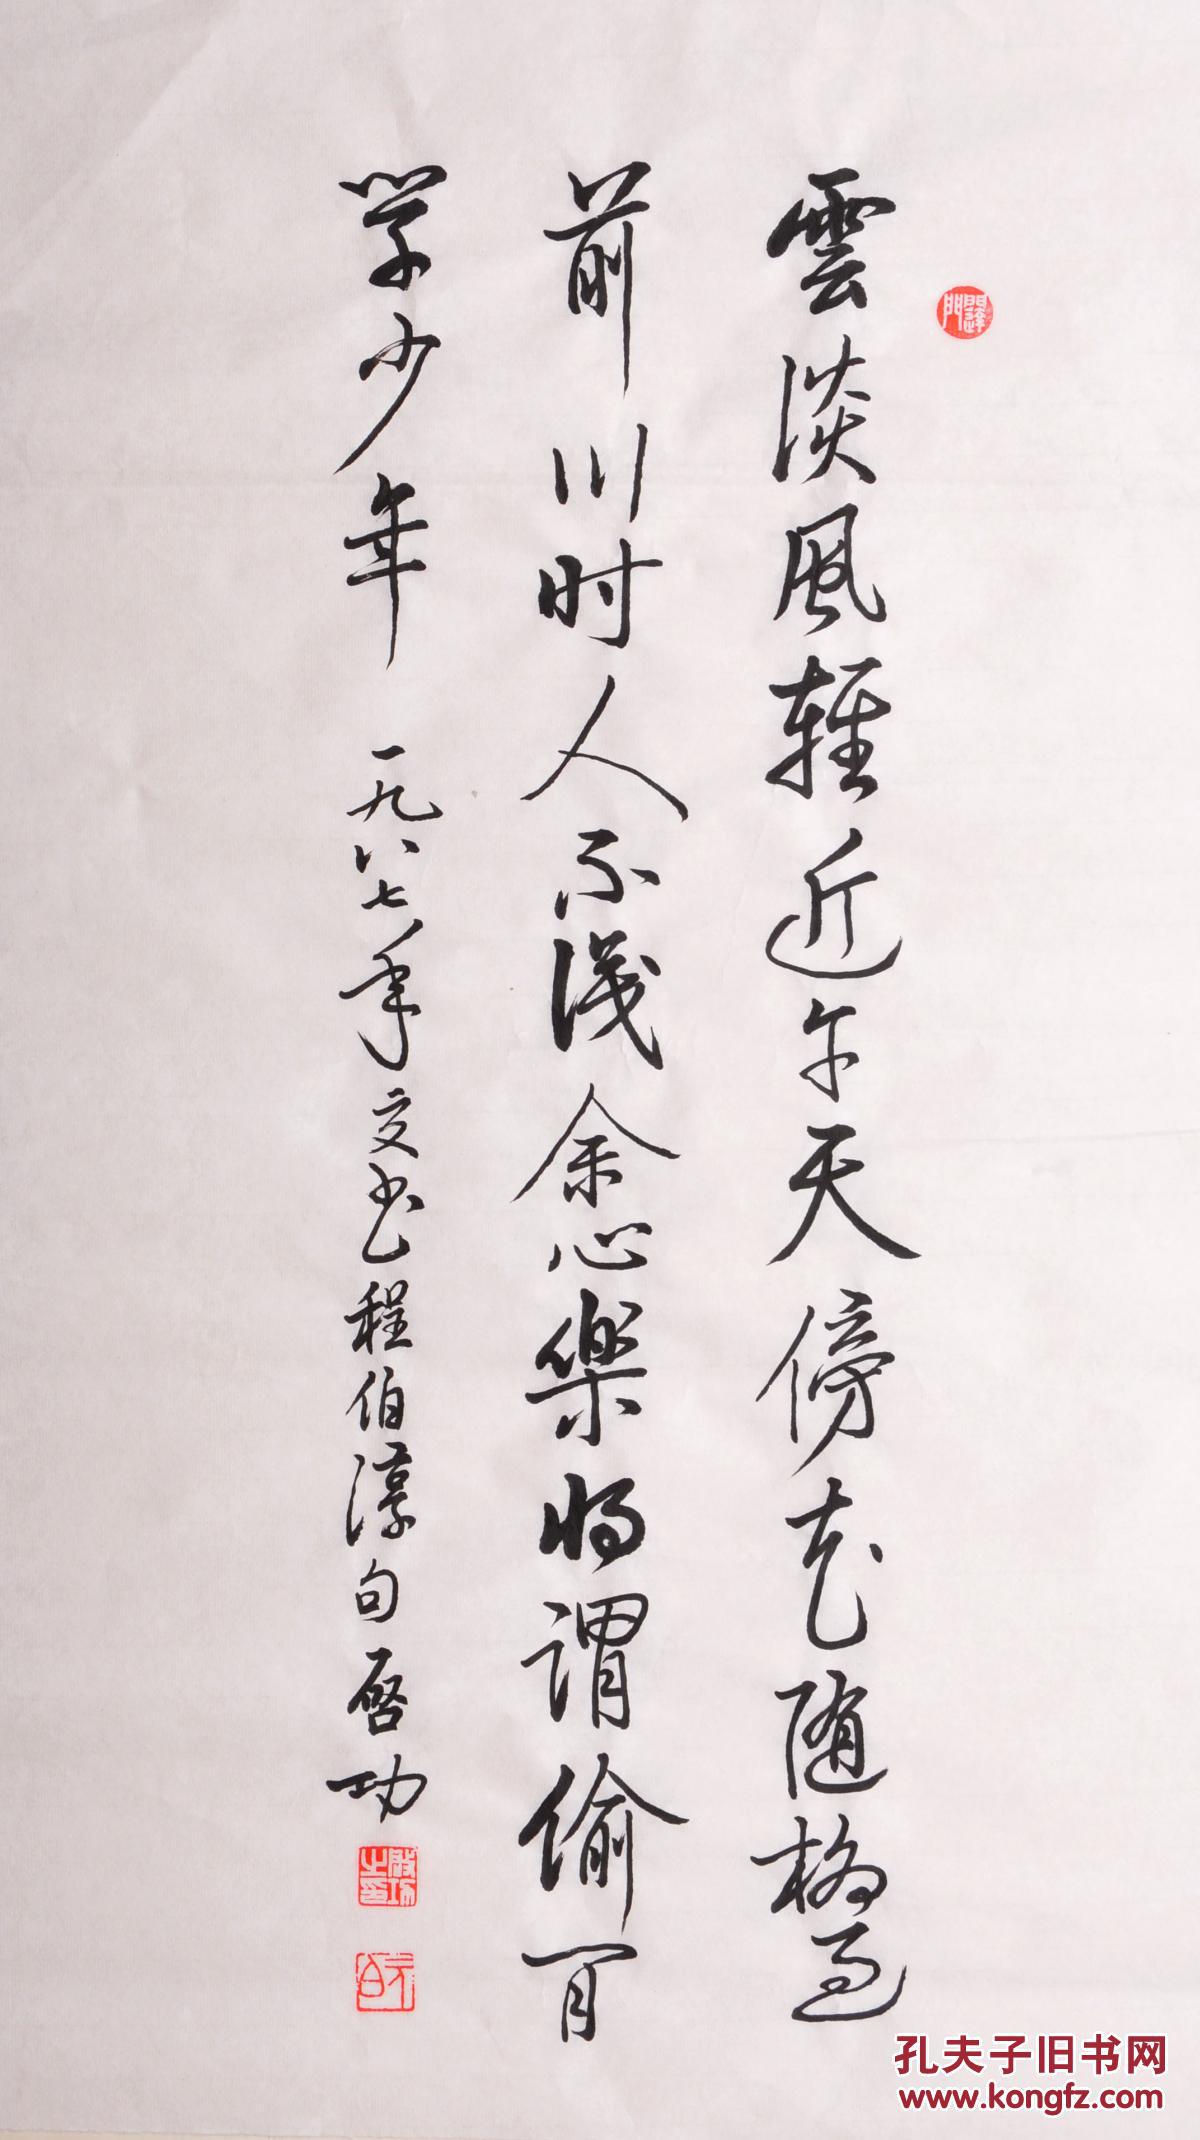 雲淡風輕近午天傍花随柳過
前川时人不識余心樂将謂偷閒
學少年 一九八七年夏書程伯淳句 啓功
啟功之印
元白
孔夫子旧书网
www.kongfz.com